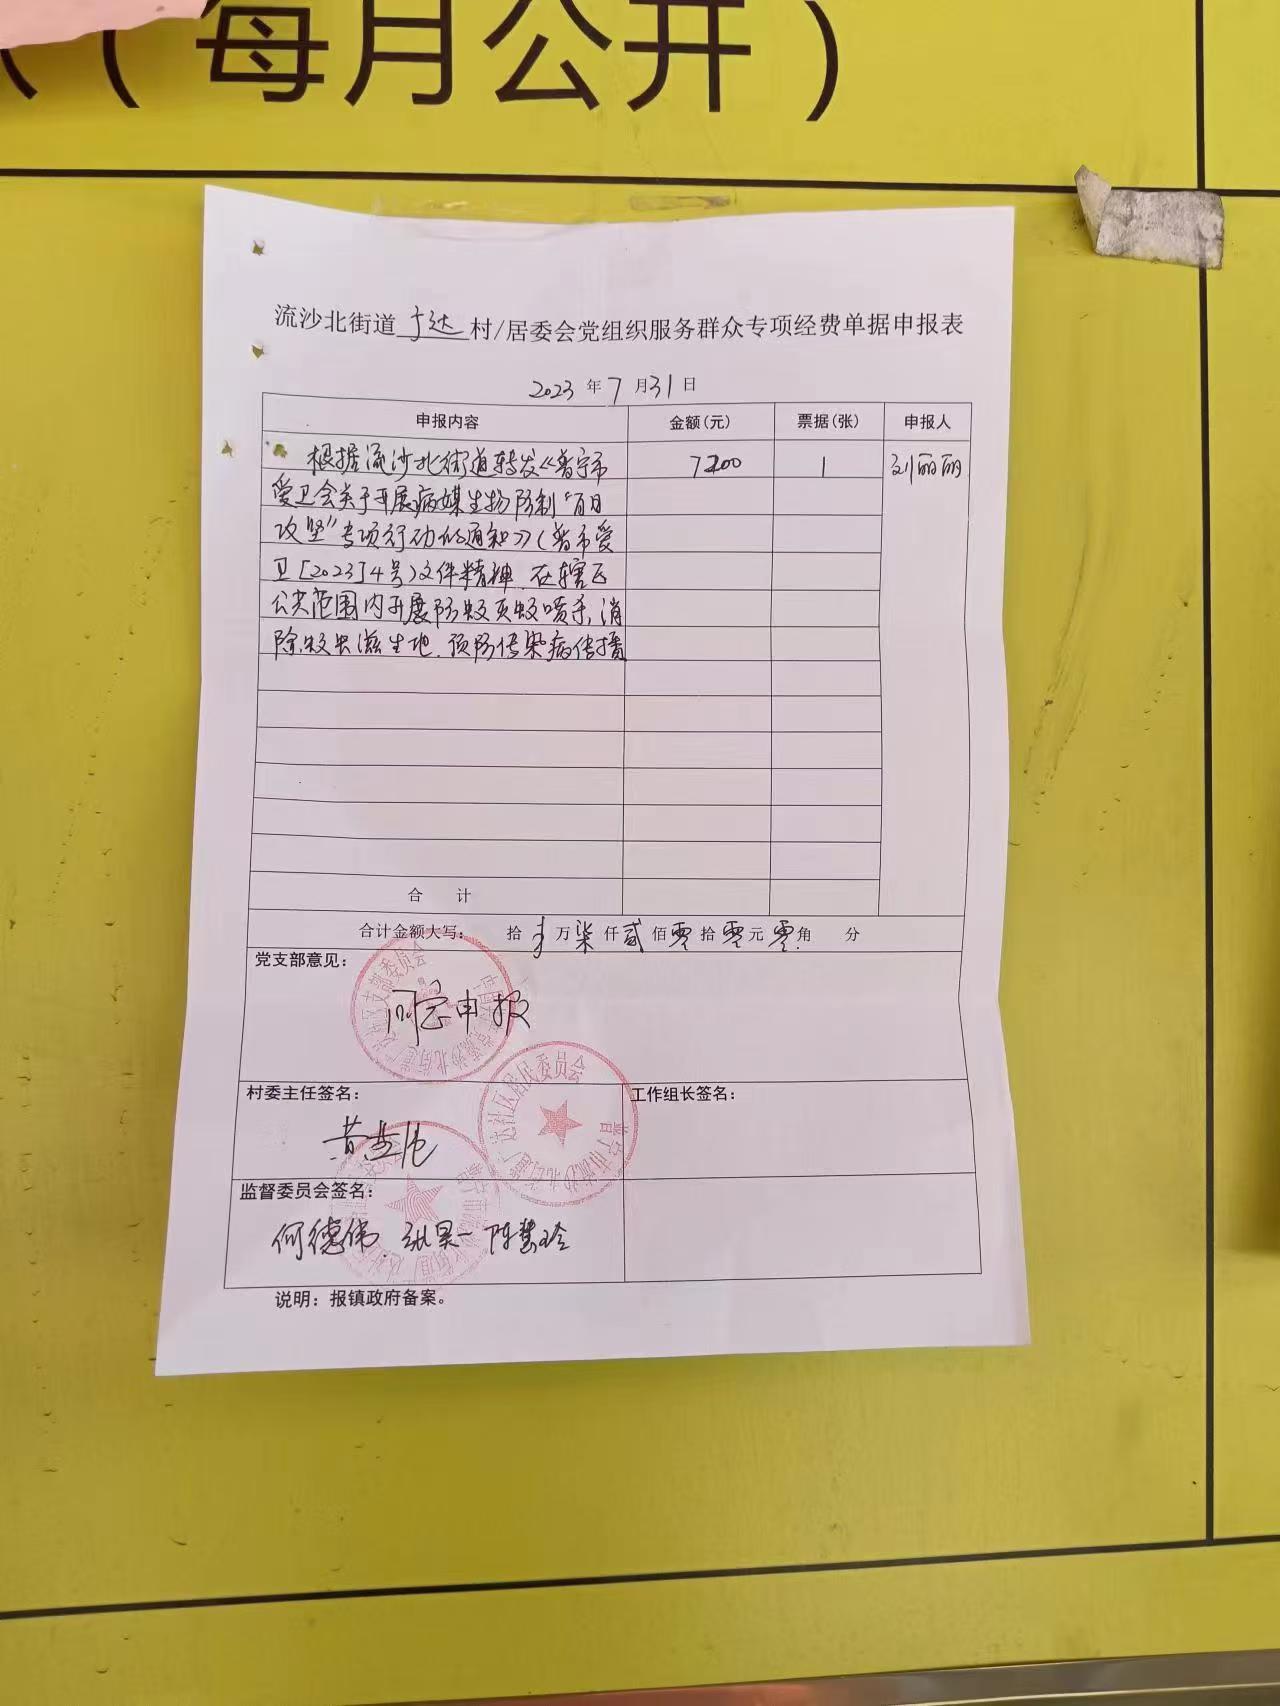 （每月公开）
流沙北街道广达村/居委会党组织服务群众专项经费单据申报表
2023年7月31日
申报内容 金额(元) 票据(张) 申报人
根据流沙北街道转发《普宁市 7200 1 刘丽丽
爱卫会关于开展病媒生物防制“百日
攻坚”专项行动的通知》(普市爱
卫[2023]4号)文件精神.在辖区
公共范围内开展防蚊灭蚊喷杀,消
除蚊虫滋生地.预防传染病传播
合 计
合计金额大写: 拾 万柒仟贰佰零拾零元零角 分
党支部意见:
同意申报
村委主任签名: 工作组长签名:
监督委员会签名:
何德伟 陈慧玲
说明: 报镇政府备案。
普宁市流沙北街道广达社区居民委员会